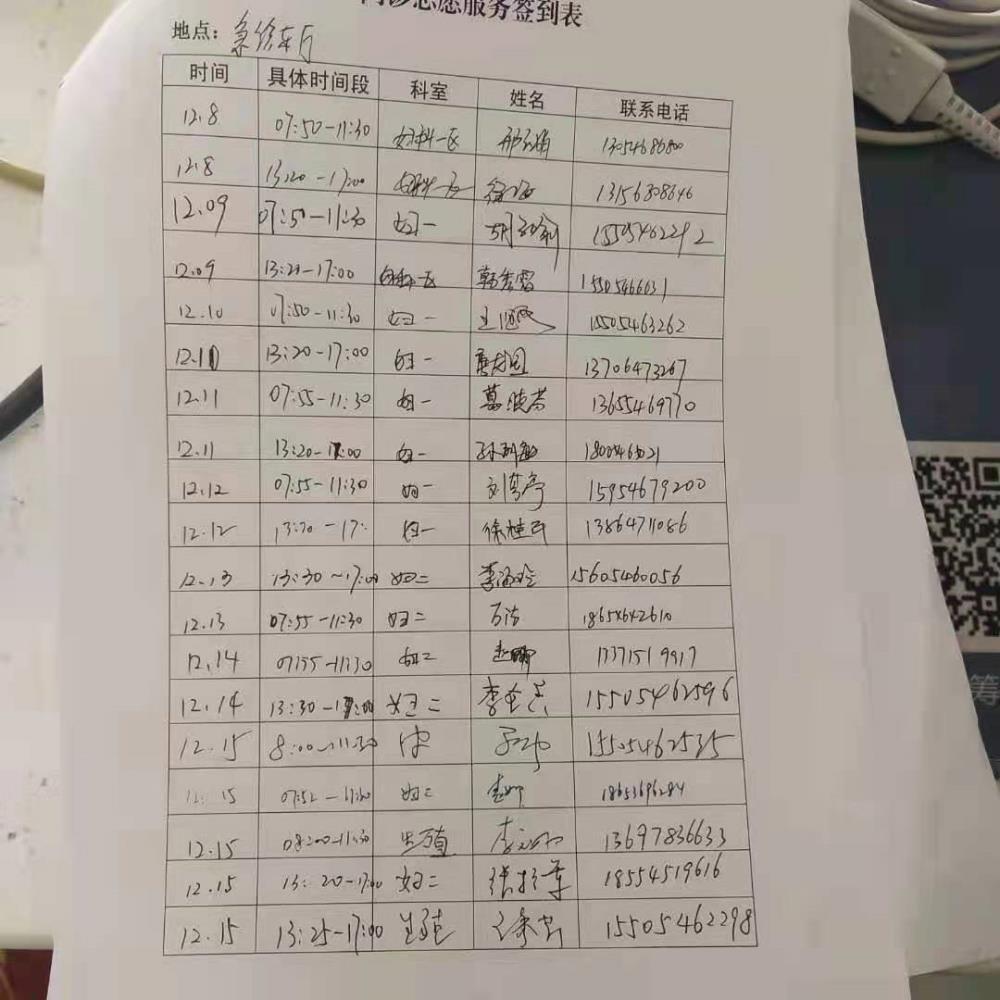 门诊志愿服务签到表
地点：急诊东厅
时间 具体时间段 科室 姓名 联系电话
12.8 07:50-11:30 妇科一区 13054686800
12.8 13:20-17:00 妇科一区 13156808646
12.09 07:50-11:30 妇一 15505462292
12.09 13:20-17:00 妇科一区 韩秀霞 15505466631
12.10 07:50-11:30 妇一 15505463262
12.11 13:20-17:00 妇一 13706473267
12.11 07:55-11:30 妇一 葛晓芳 13655469770
12.11 13:20-17:00 妇一
12.12 07:55-11:30 妇一 刘梦亭 15954679200
12.12 13:20-17: 妇一 徐桂民 13864711086
12.13 13:30~17:00 妇二 李海玲 15605460056
12.13 07:55-11:30 妇二 万洁 18654642610
12.14 07:55-11:30 妇二 13371519917
12.14 13:30-17:00 妇二 15505462596
12.15 8:00-11:30 15505462535
12.15 妇二 18653696284
12.15 08:00-11:30 生殖 13697836633
12.15 13:20-17:00 妇二 18554519616
12.15 13:25-17:00 生殖 15505462298
筹